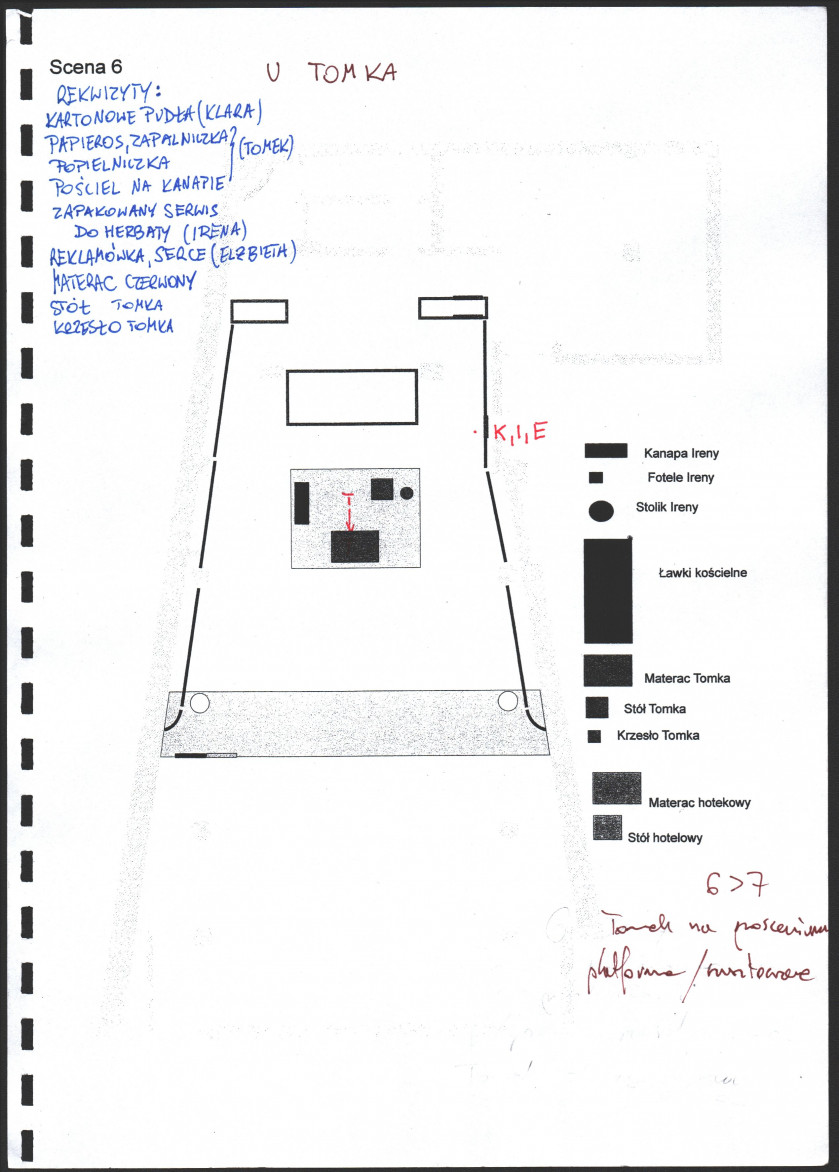 Scena 6
U TOMKA
REKWIZYTY:
KARTONOWE PUDŁA (KLARA)
PAPIEROS, ZAPALNICZKA
POPIELNICZKA
POŚCIEL NA KANAPIE
(TOMEK)
ZAPAKOWANY SERWIS
DO HERBATY (IRENA)
REKLAMÓWKA, SERCE (ELŻBIETA)
MATERAC CZERWONY
STÓŁ TOMKA
KRZESŁO TOMKA
K, I, E
T
Kanapa Ireny
Fotele Ireny
Stolik Ireny
Ławki kościelne
Materac Tomka
Stół Tomka
Krzesło Tomka
Materac hotekowy
Stół hotelowy
6 > 7
Tomek na proscenium
platforma /